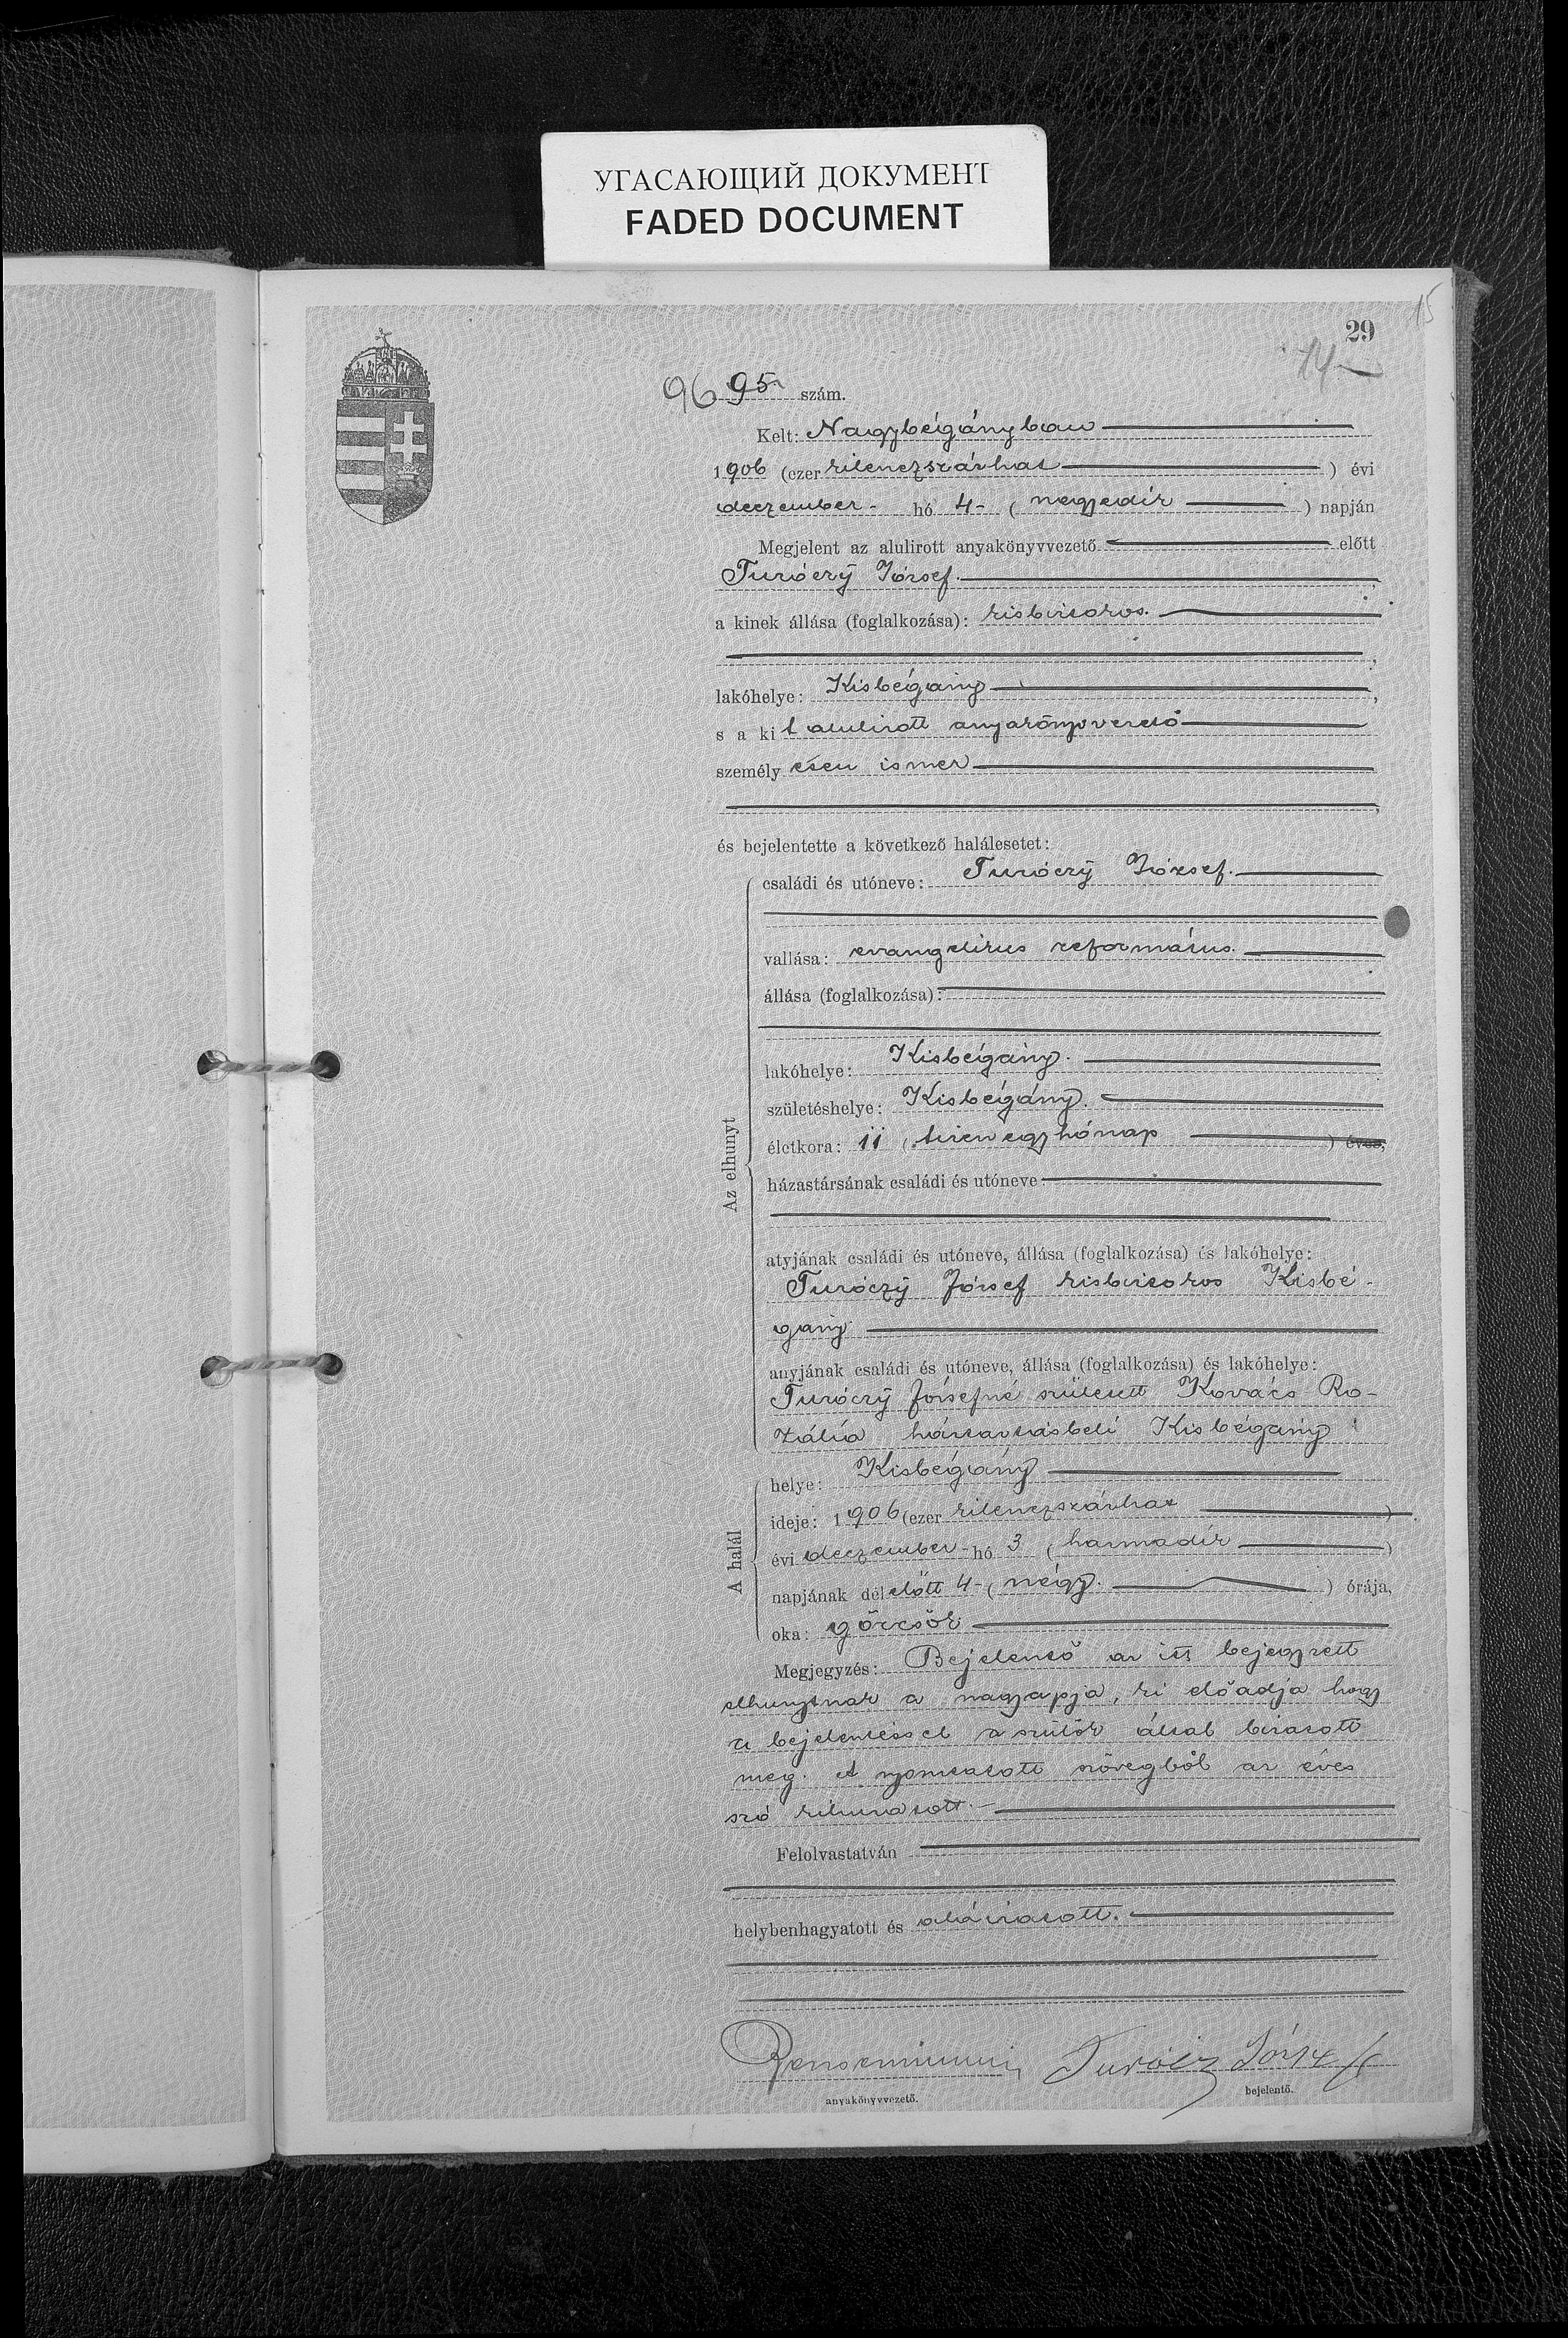 УГАСАЮЩИЙ ДОКУМЕНТ
FADED DOCUMENT
15
29
14
96 95 szám.
Kelt: Nagybégányban
1906 (ezer kilenczszázhat) évi
deczember hó 4 (negyedik) napján
Megjelent az alulirott anyakönyvvezető előtt
Turóczÿ József.
a kinek állása (foglalkozása): kisbirtokos.
lakóhelye: Kisbégány,
s a kit alulirott anyakönyvvezető
személyesen ismer
és bejelentette a következő halálesetet:
Az elhunyt
családi és utóneve: Turóczÿ József.
vallása: evangelikus református.
állása (foglalkozása):
lakóhelye: Kisbégány.
születéshelye: Kisbégány.
életkora: 11 (tizenegy hónap) éves,
házastársának családi és utóneve
atyjának családi és utóneve, állása (foglalkozása) és lakóhelye:
Turóczÿ József kisbirtokos Kisbé-
gány
anyjának családi és utóneve, állása (foglalkozása) és lakóhelye:
Turóczÿ Józsefné született Kovács Ro-
zália háztartásbeli Kisbégány
A halál
helye: Kisbégány
ideje: 1906 (ezer kilenczszázhat)
évi deczember hó 3 (harmadik)
napjának délelőtt 4 (négy.) órája,
oka: görcsök
Megjegyzés: Bejelentő az itt bejegyzett
elhunytnak a nagyapja, ki előadja hogy
a bejelentéssel a szülők által bizatott
meg. A nyomtatott szövegből az éves
szó kihuzatott.
Felolvastatván
helybenhagyatott és aláiratott.
Turócz József
anyakönyvvezető.
bejelentő.